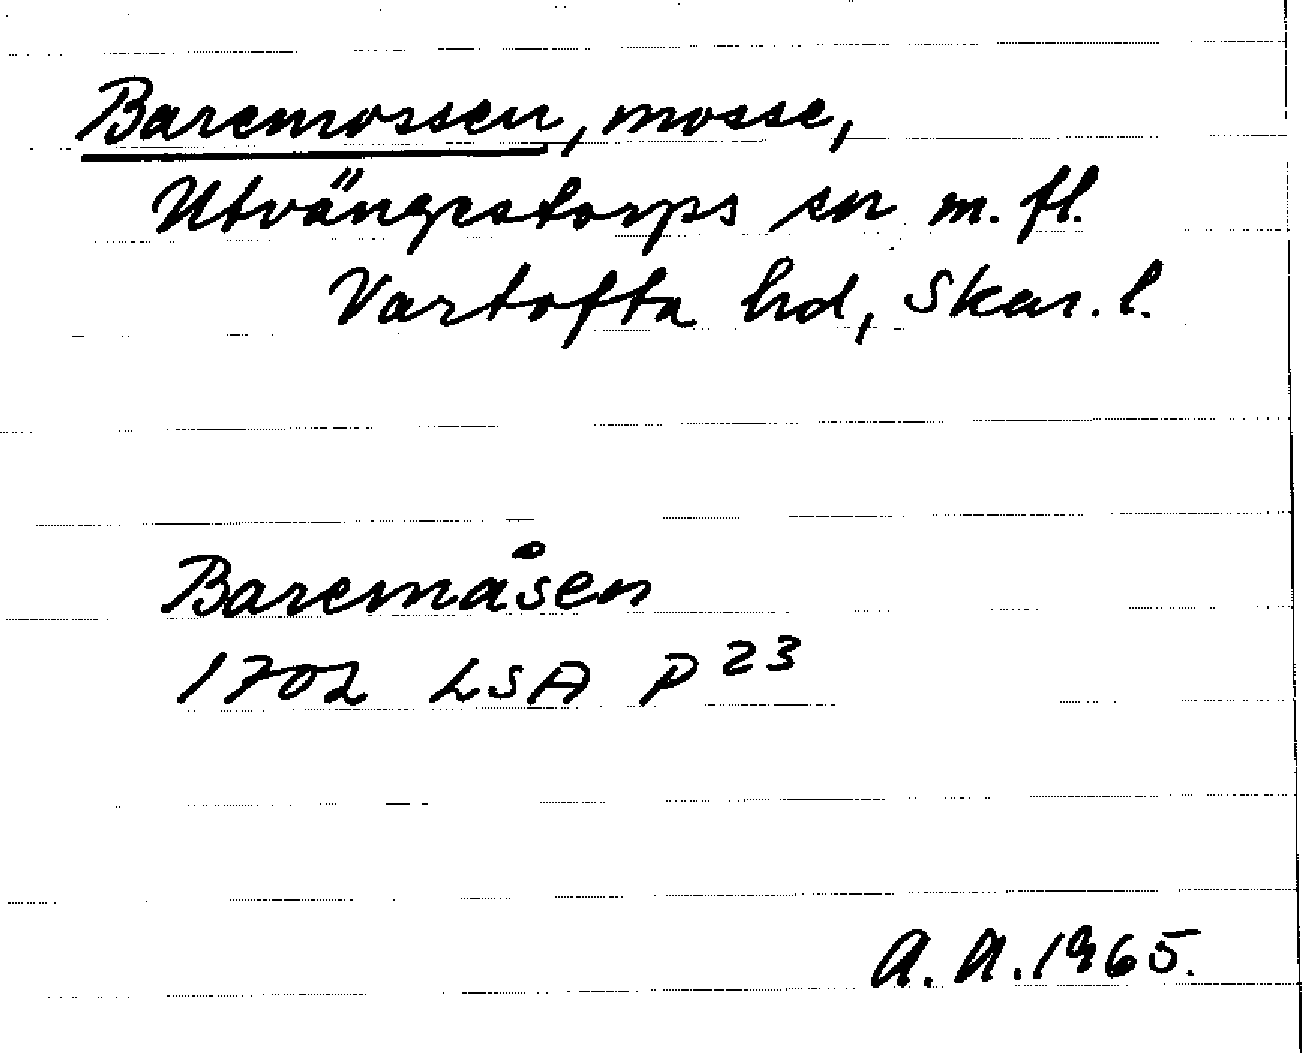 Baremossen, mosse,
Utvängstorps sn m. fl.
Vartofta hd, Skar. l.
Baremåsen
1702 LSA P 23
A. A. 1965.